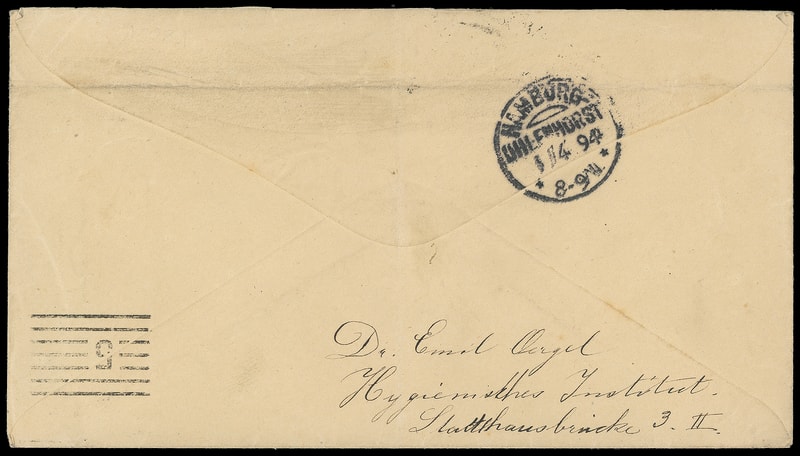 HAMBURG-
UHLENHORST
/4 94
* 8-9N. *
Dr. Emil Oergel
Hygienisches Institut.
Stadthausbrücke 3. II.